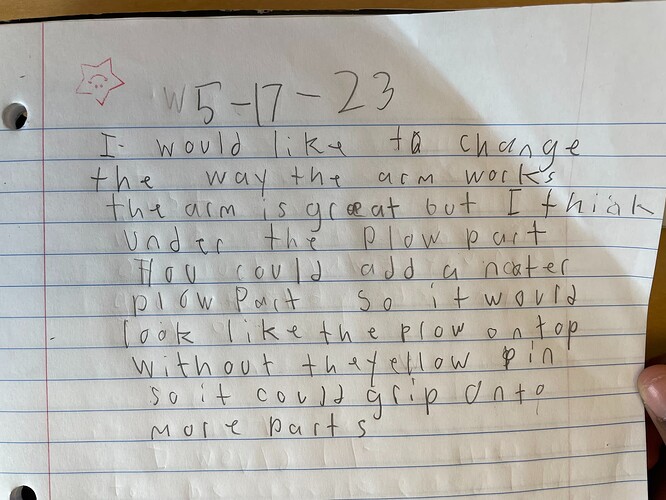 W 5-17-23
I would like to change
the way the arm works
the arm is great but I think
under the plow part
you could add a noater
plow part so it would
look like the plow on top
without the yellow pin
so it could grip onto
more parts